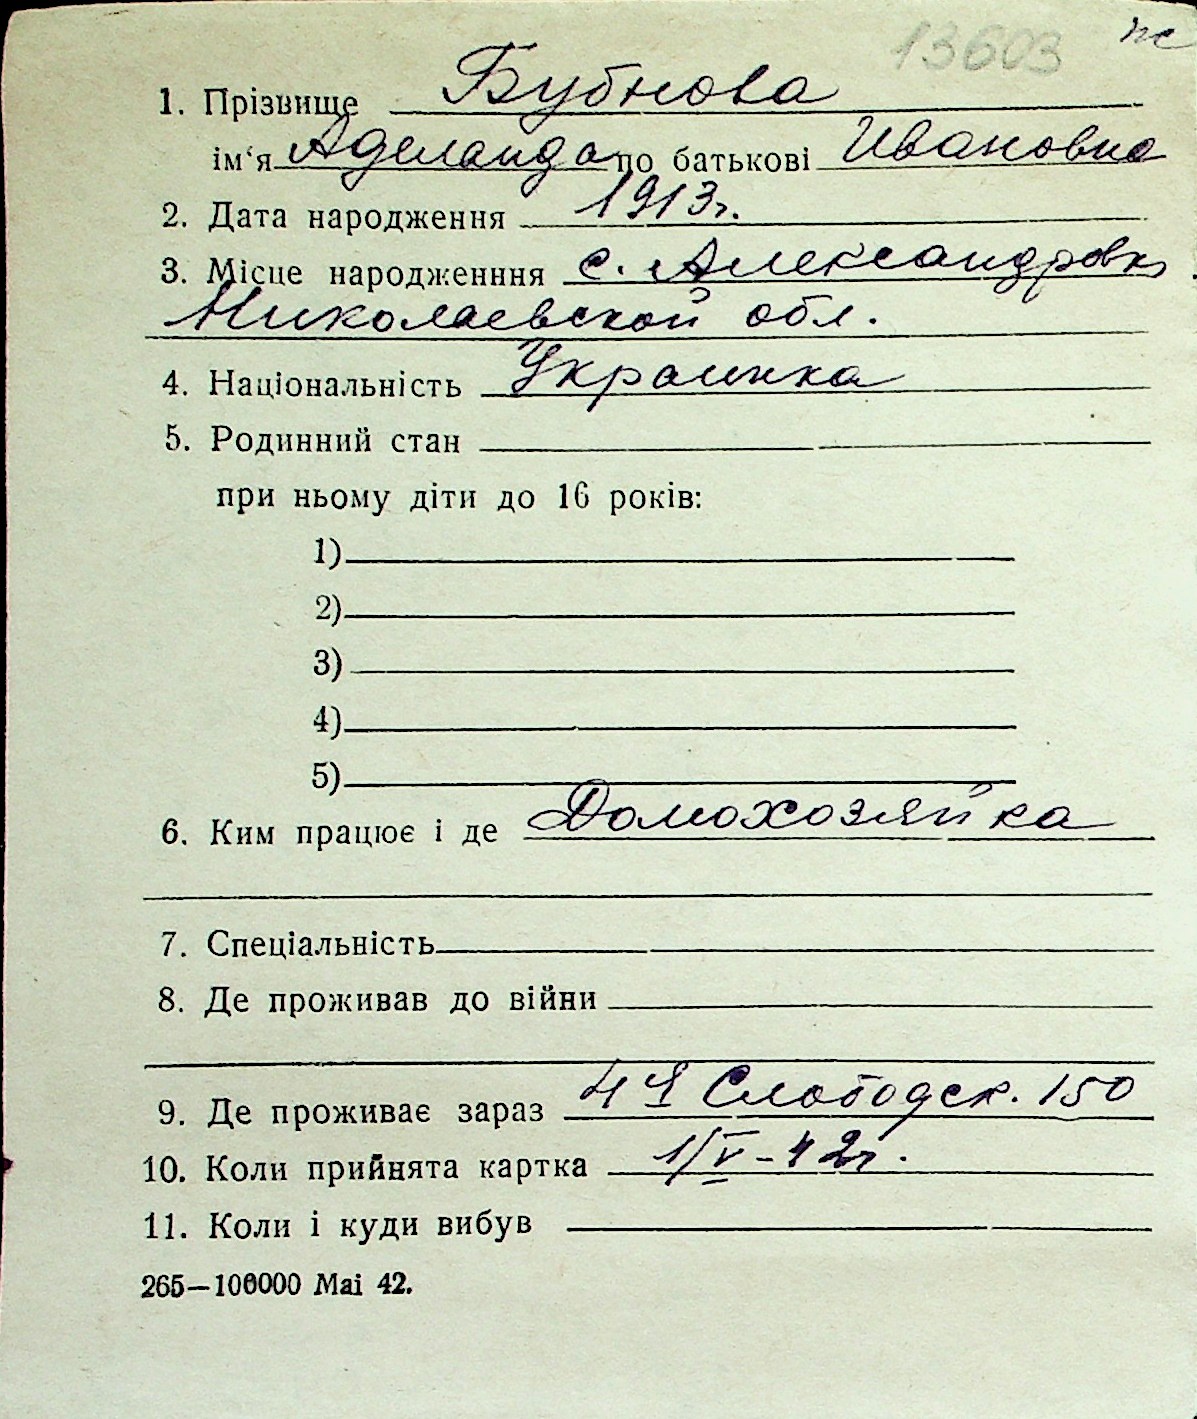 13603 пс
1. Прізвище Бубнова
ім‘я Аделаида по батькові Ивановна
2. Дата народження 1913г.
3. Місце народженння с. Александровка
Николаевской обл.
4. Національність Украинка
5. Родинний стан
при ньому діти до 16 років:
1)
2)
3)
4)
5)
6. Ким працює і де Домохозяйка
7. Спеціальність
8. Де проживав до війни
9. Де проживає зараз 4 Я Слободск. 150
10. Коли прийнята картка 1/V - 42г.
11. Коли і куди вибув
265—100000 Mai 42.